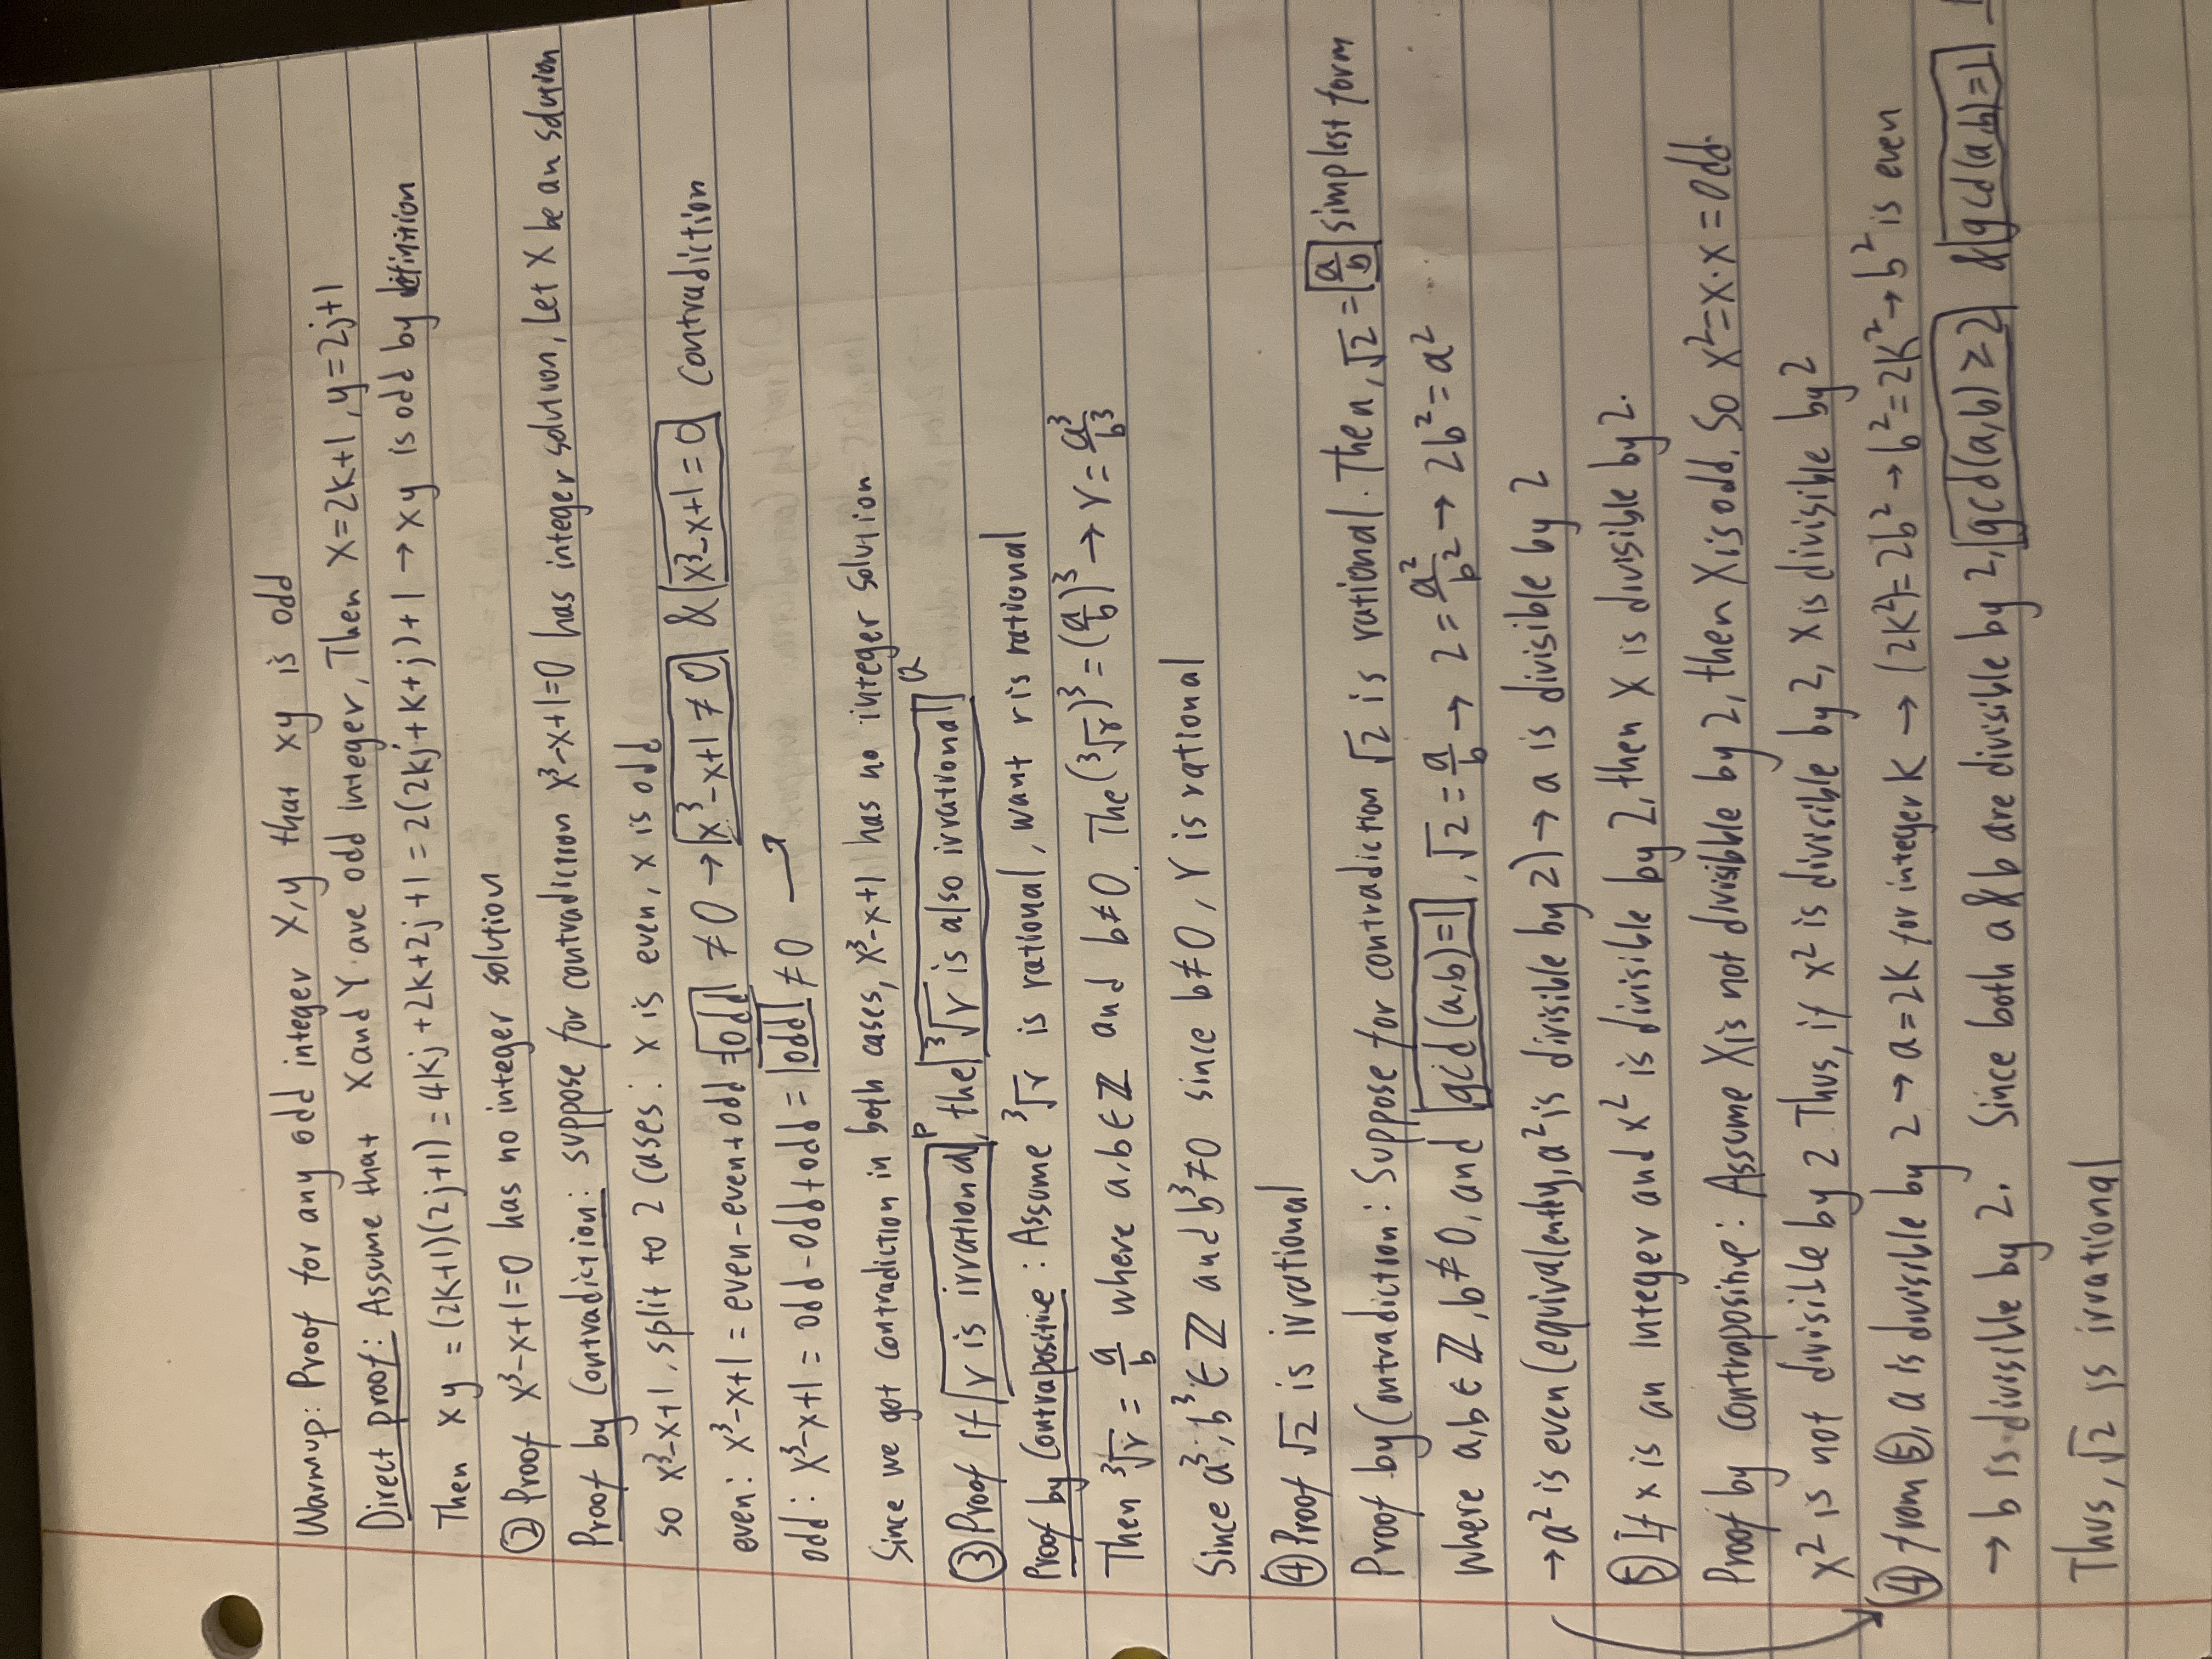 Warmup: Proof for any odd integer x,y that xy is odd
Direct proof: Assume that x and y are odd integer, Then x=2k+1, y=2j+1
Then xy = (2k+1)(2j+1) = 4kj+2k+2j+1 = 2(2kj+k+j)+1 → xy is odd by definition
② Proof x³-x+1=0 has no integer solution
Proof by Contradiction: suppose for contradiction x³-x+1=0 has integer solution, Let x be an solution
so x³-x+1, split to 2 cases: x is even, x is odd
even: x³-x+1 = even-even+odd = odd ≠ 0 → x³-x+1 ≠ 0 & x³-x+1=0 Contradiction
odd: x³-x+1 = odd-odd+odd = odd ≠ 0
Since we got contradiction in both cases, x³-x+1 has no integer solution
③ Proof If r is irrational P, the ∛r is also irrational Q
Proof by Contrapositive: Assume ∛r is rational, want r is rational
Then ∛r = a/b where a,b∈ℤ and b≠0. The (∛r)³ = (a/b)³ → r = a³/b³
Since a³, b³ ∈ ℤ and b³≠0 since b≠0, r is rational
④ Proof √2 is irrational
Proof by Contradiction: Suppose for contradiction √2 is rational. Then, √2 = a/b simplest form
where a,b ∈ ℤ, b≠0, and gcd(a,b)=1, √2 = a/b → 2 = a²/b² → 2b² = a²
→ a² is even (equivalently, a² is divisible by 2) → a is divisible by 2
⑤ If x is an integer and x² is divisible by 2, then x is divisible by 2.
Proof by contrapositive: Assume x is not divisible by 2, then x is odd. So x²=x·x = odd.
x² is not divisible by 2 Thus, if x² is divisible by 2, x is divisible by 2
④ from ⑤, a is divisible by 2 → a=2k for integer k → (2k²)=2b² → b²=2k² → b² is even
→ b is divisible by 2. Since both a & b are divisible by 2, gcd(a,b) ≥ 2 & gcd(a,b)=1
Thus, √2 is irrational